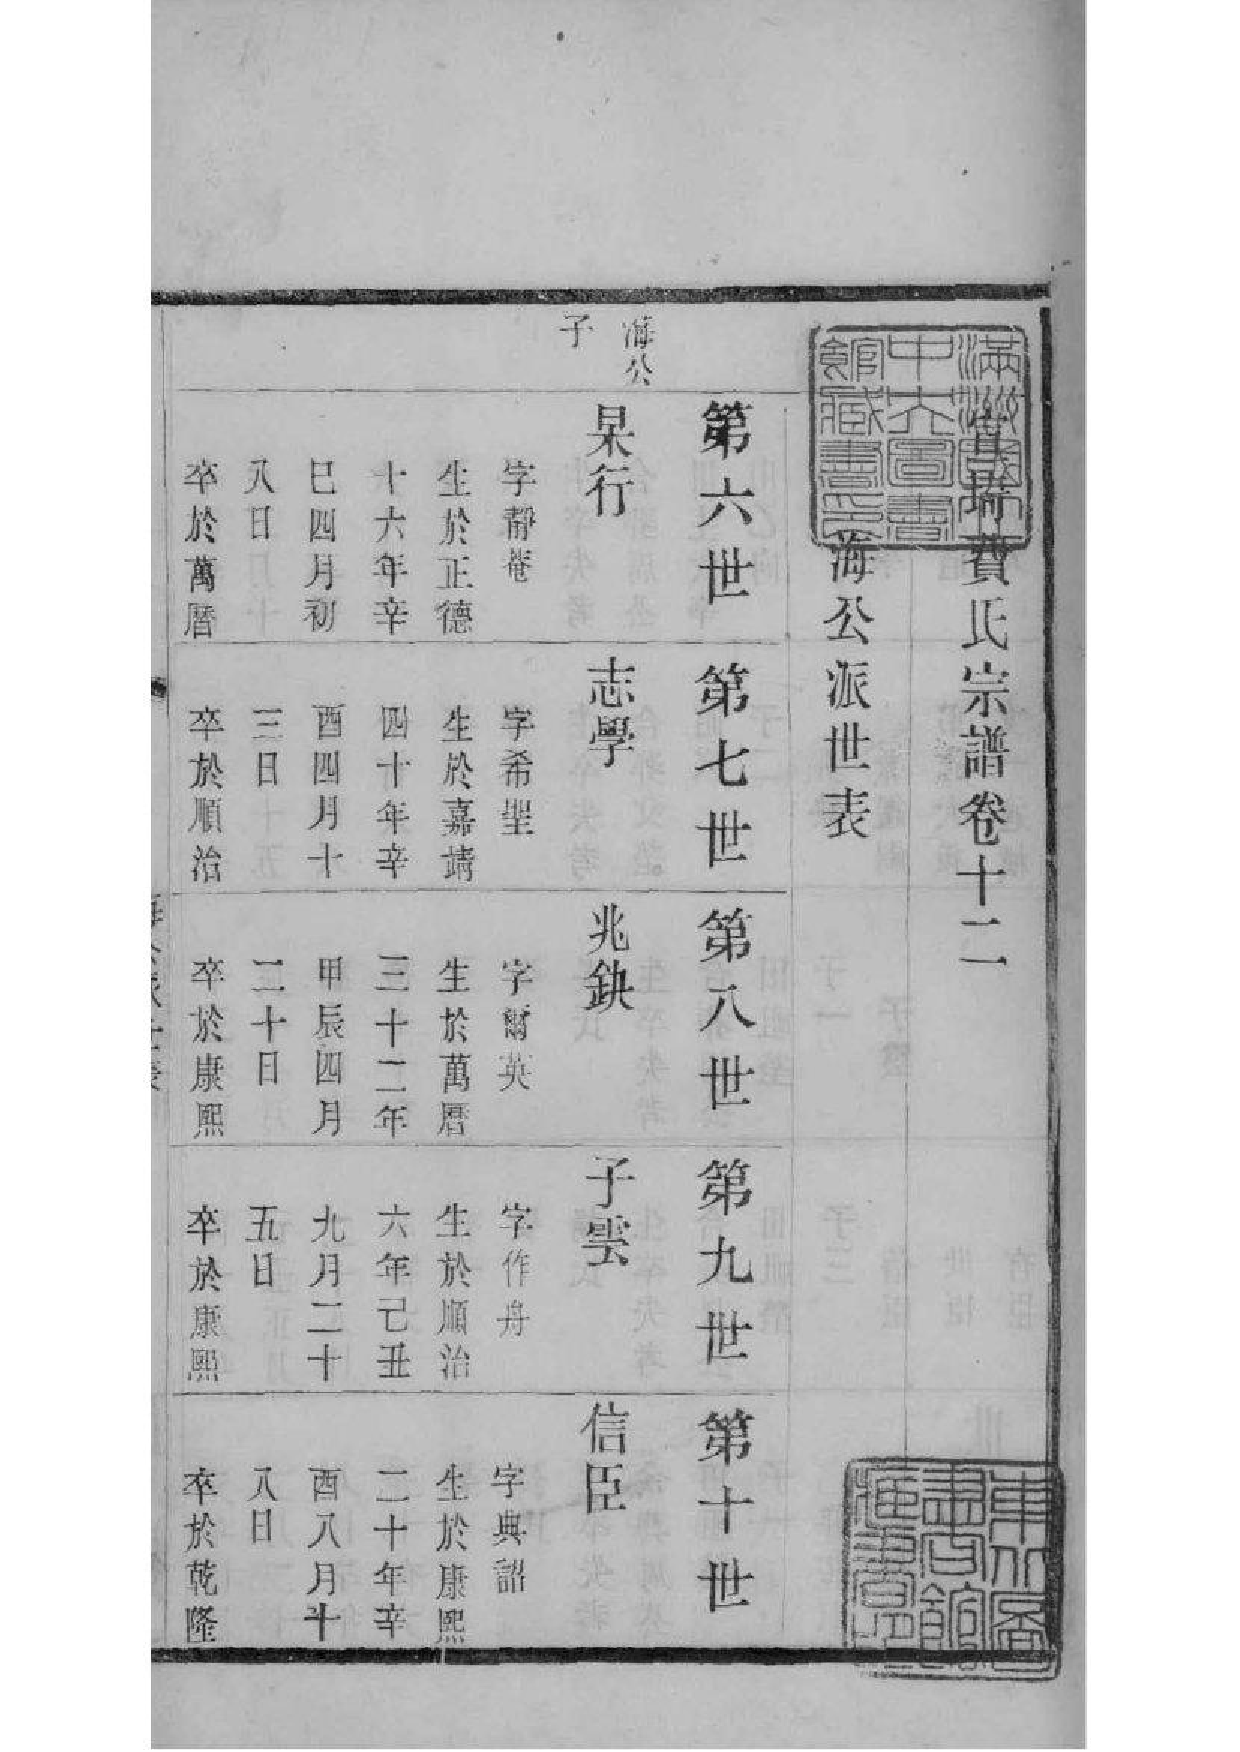 宜琦費氏宗譜卷十二
海公派世表
海公
子
第六世
杲行
字靜菴
生於正德
十六年辛
巳四月初
八日
卒於萬曆
第七世
志學
字希聖
生於嘉靖
四十年辛
酉四月十
三日
卒於順治
第八世
兆鉠
字爾英
生於萬曆
三十二年
甲辰四月
二十日
卒於康熙
第九世
子雲
字作舟
生於順治
六年己丑
九月二十
五日
卒於康熙
第十世
信臣
字典詔
生於康熙
二十年辛
酉八月十
八日
卒於乾隆
滿洲國
中央圖書
館藏書印